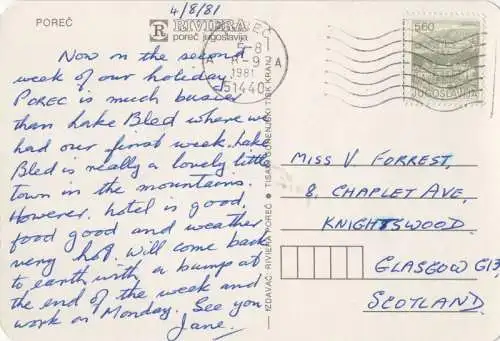 4/8/81
POREČ
R RIVIERA
poreč jugoslavija
Now on the second
week of our holiday.
POREC is much busier
than Lake Bled where we
had our first week. Lake
Bled is really a lovely little
town in the mountains.
However, hotel is good,
food good and weather
very hot. Will come back
to earth with a bump at
the end of the week and
work on Monday. See you
Jane.
IZDAVAČ: RIVIERA POREČ ● TISAK: GORENJSKI TISK KRANJ
5-8
1981
51440
A
5.60
JUGOSLAVIJA
MISS V FORREST,
8, CHAPLET AVE,
KNIGHTSWOOD
GLASGOW G13,
SCOTLAND.